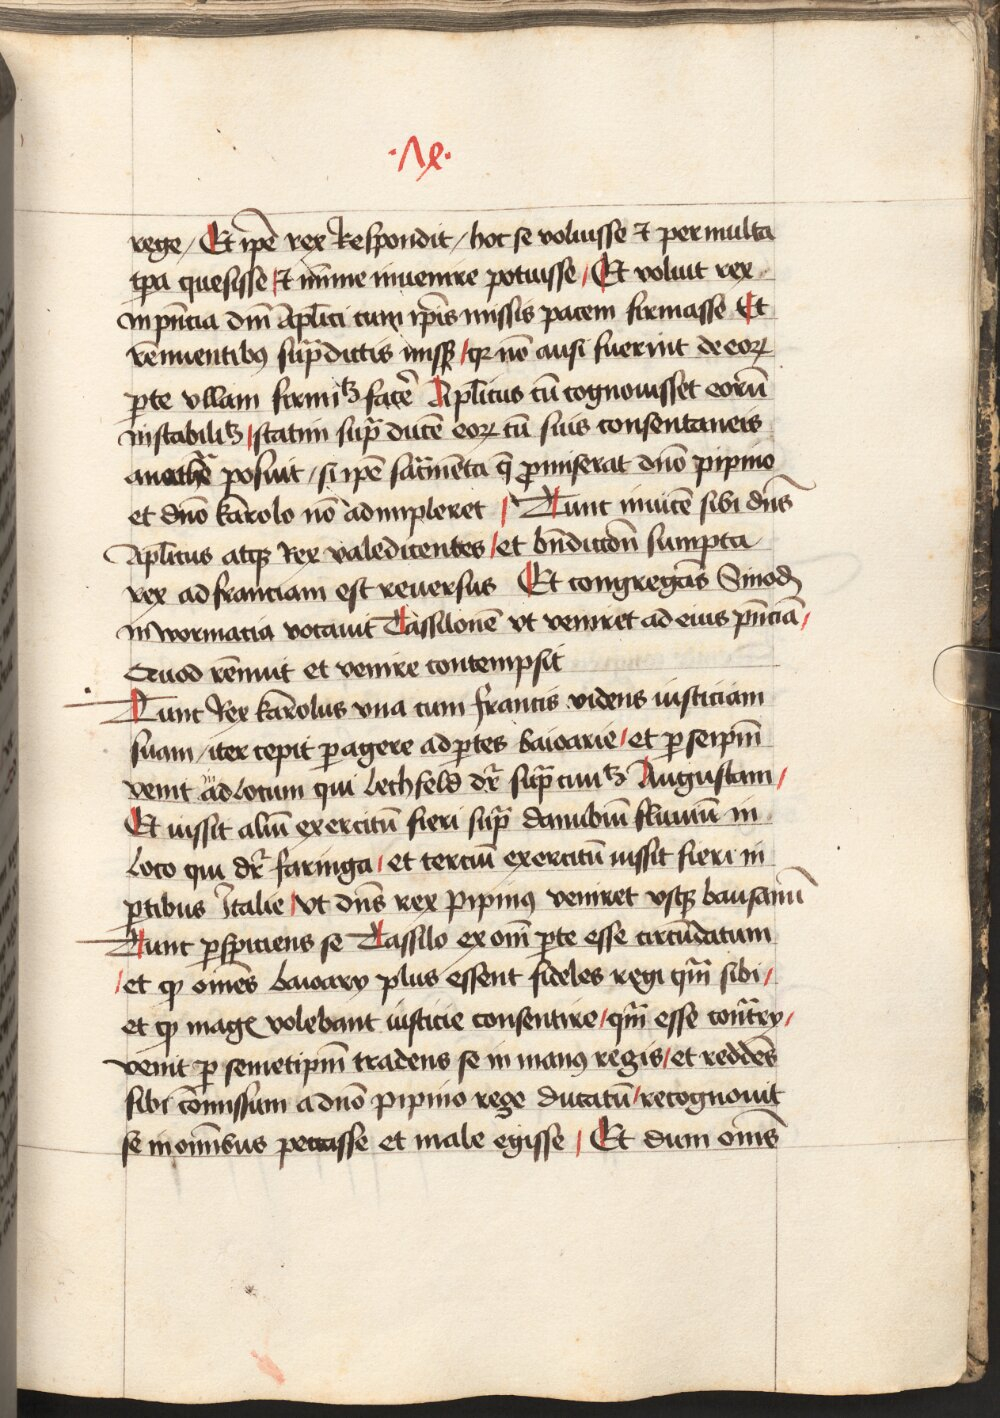 ·Λꝭ·
rege / Et ip̄e rex Respondit / hoc se voluisse ⁊ per multa
tp̄a quesisse / ⁊ mı̄me inuenire potuisse / Et voluit rex
in pn̄cia dn̄i Ap̄lici cum ip̄is missis pacem firmasse Et
rēnuentibꝰ sup̄radictis missꝭ / qꝛ nō ausi fuerint de eoꝝ
ꝑte vllam firmitꝫ facē Ap̄licus cū cognouisset eorū
instabilitꝫ / statim sup̄ ducē eoꝝ cū suis consentaneis
anathē posuit / si ip̄e sac̄menta q̄ ꝓmiserat dn̄o pipino
et dn̄o kārolo nō adimpleret / Tunc inuicē sibi dn̄s
Ap̄licus atqꝫ Rex valedicentes / et bn̄dictōn̄ sumpta
rex ad franciam est reuersus Et congregās Sinodꝫ
in wormacia vocauit Tassilonē vt veniret ad eius pn̄ciā /
Quod rēnuit et venire contempsit
Tunc Rex kārolus vna cum francis videns iusticiam
suam / iter cepit ꝑagere ad ꝑtes baioarie / et ꝑ seip̄m
venit in ad locum qui Lechfeld dr̄ sup̄ ciuitꝫ Augustam /
Et iussit aliū exercitū fieri sup̄ danubiū fluuiū in
loco qui dr̄ faringa / et terciū exercitū iussit fieri in
ꝑtibus Italie / vt dn̄s rex pipinꝰ veniret vsqꝫ bausanū
Tunc ꝑspiciens se Tassilo ex om̄i ꝑte esse circūdatum
/ et ꝙ om̄es baioarij plus essent fideles regi qm̄ sibi /
et ꝙ magꝭ volebant iusticie consentire / qm̄ esse cont̄rij /
venit ꝑ semetip̄m tradens se in manꝰ regis / et reddēs
sibi cōmissum a dn̄o pipino rege ducatū / recognouit
se in om̄ibus peccasse et male egisse / Et dum om̄s